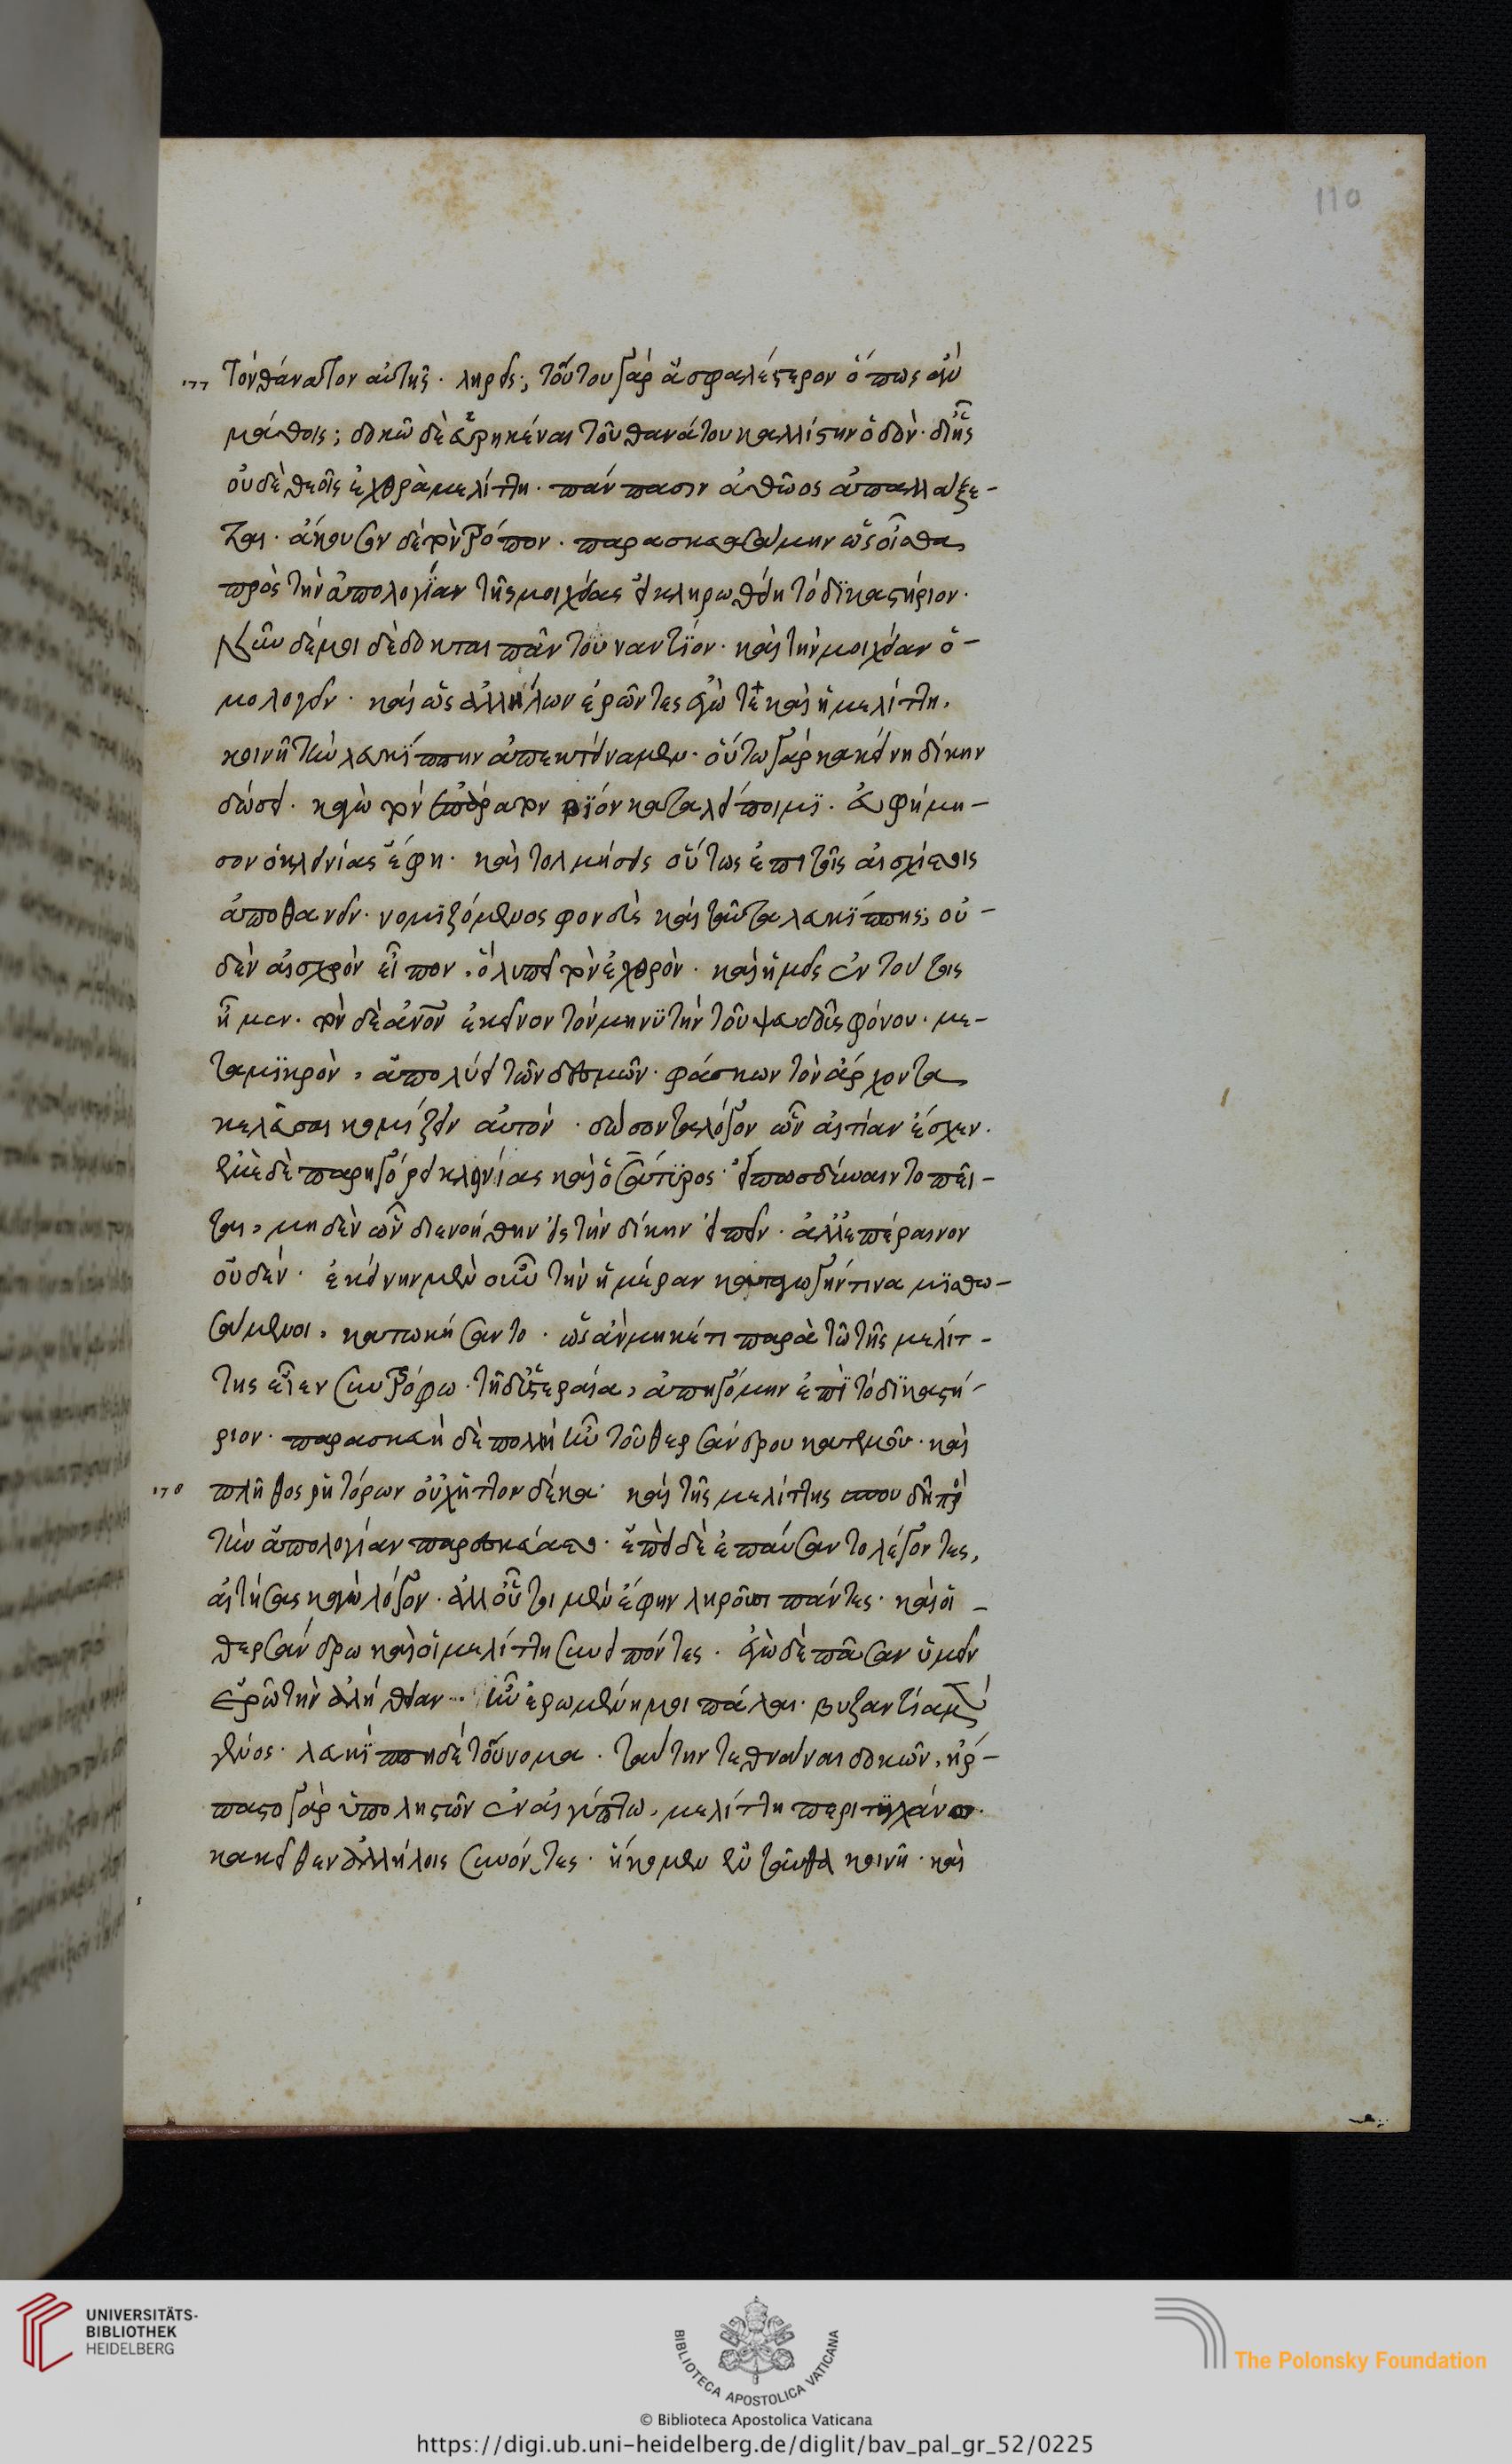 110
177 τὸν θάνατον αὐτῆς. ληρεῖς; τούτου γὰρ ἀσφαλέστερον ὅπως ἂν
μάθοις; δοκῶ δὲ εὑρηκέναι τοῦ θανάτου καλλίστην ὁδὸν. δι' ἧς
οὐδὲ θεοῖς ἐχθρὰ μελίττη. παντάπασιν ἀθῶος ἀπαλλάξε-
ται. ἄκουσον δὲ τὸν τρόπον. παρασκευασαίμην ὡς οἶσθα
πρὸς τὴν ἀπολογίαν τῆς μοιχείας εἰ κληρωθείη τὸ δικαστήριον.
νῦν δέ μοι δέδοκται πᾶν τοὐναντίον. καὶ τὴν μοιχείαν ὁ-
μολογεῖν. καὶ ὡς ἀλλήλων ἐρῶντες ἐγώ τε καὶ ἡ μελίττη.
κοινῆ τὴν λευκίππην ἀπεκτείναμεν. οὕτω γὰρ κἀκείνη δίκην
δώσει. κἀγὼ τὸν ἐπάρατον βίον καταλείποιμι. εὐφήμη-
σον ὁ κλεινίας ἔφη. καὶ τολμήσεις οὕτως ἐπὶ τοῖς αἰσχίστοις
ἀποθανεῖν. νομιζόμενος φονεὺς καὶ ταῦτα λευκίππης; οὐ-
δὲν αἰσχρὸν εἶπον. ὃ λυπεῖ τὸν ἐχθρὸν. καὶ ἡμεῖς ἐν τούτοις
ἦμεν. τὸν δὲ ἄνον ἐκεῖνον τὸν μηνυτὴν τοῦ ψευδοῦς φόνου. με-
ταμικρὸν, ἀπολύει τῶν δεσμῶν. φάσκων τὸν ἄρχοντα
κελεῦσαι κομίζειν αὐτὸν. δώσοντα λόγον ὧν αἰτίαν ἔσχεν.
ἐμὲ δὲ παρηγόρει κλεινίας καὶ ὁ σάτυρος. εἴπως δύναιντο πεῖ-
σαι, μηδὲν ὧν διενοήθην εἰς τὴν δίκην εἰπεῖν. ἀλλ' ἐπέραινον
οὐδέν. ἐκείνην μὲν οὖν τὴν ἡμέραν καταγωγήν τινα μισθω-
σάμενοι, κατωκήσαντο. ὡς ἂν μηκέτι παρὰ τῶ τῆς μελίτ-
της εἶεν συντρόφω. τῆ δ' ὑστεραία, ἀπηγόμην ἐπὶ τὸ δικαστή-
ριον. παρασκευὴ δὲ πολλὴ ἦν τοῦ θερσάνδρου κατ' ἐμοῦ. καὶ
178 πλῆθος ῥητόρων οὐχ ἧττον δέκα. καὶ τῆς μελίττης σπουδῆ πρὸς
τὴν ἀπολογίαν παρεσκεύαστο. ἐπεὶ δὲ ἐπαύσαντο λέγοντες,
αἰτήσας κἀγὼ λόγον. ἀλλ' οὗτοι μὲν ἔφην ληροῦσι πάντες. καὶ οἱ
θερσάνδρω καὶ οἱ μελίττη συνειπόντες. ἐγὼ δὲ πᾶσαν ὑμῖν
ἐρῶ τὴν ἀλήθειαν. ἦν ἐρωμένη μοι πάλαι. βυζαντία μὲν
γένος. λευκίππη δὲ τοὔνομα. ταύτην τεθνάναι δοκῶν, ἥρ-
παστο γὰρ ὑπὸ ληστῶν ἐν αἰγύπτω, μελίττη περιτυγχάνω.
κἀκεῖθεν ἀλλήλοις συνόντες. ἥκομεν ἐνταῦθα κοινῆ. καὶ
UNIVERSITÄTS-
BIBLIOTHEK
HEIDELBERG
BIBLIOTECA APOSTOLICA VATICANA
The Polonsky Foundation
© Biblioteca Apostolica Vaticana
https://digi.ub.uni-heidelberg.de/diglit/bav_pal_gr_52/0225